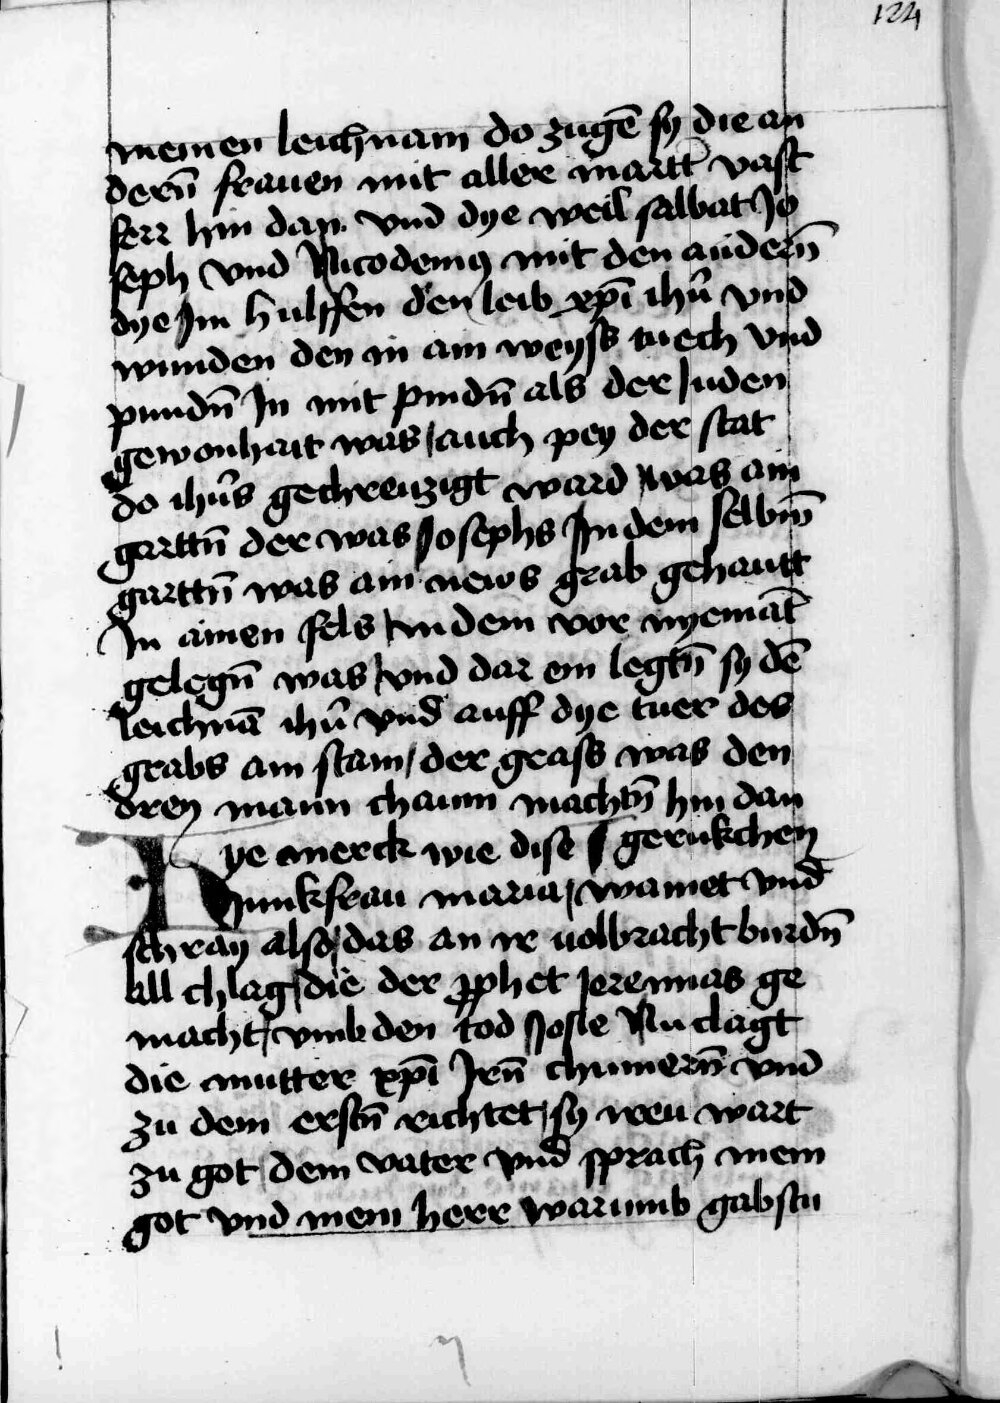 124
meinen leichnam do zugē sy die an
derñ frauen mit aller martt vast
ferr hin dan. vnd dye weil salbat Jo
seph vnd Nicodemꝰ mit den anderñ
dye Im hulffen den leib xp̄i ihū vnd
wunden den in ain weyss tuech vnd
pundñ In mit pindñ als der Juden
gewonhait was / auch pey der stat
do ihūs gechreuzigt ward was ain
garttñ der was Josephs In dem selbñ
garttñ was ain news grab gehautt
In ainen fels / in dem vor nyemāt
gelegñ was / vnd dar ein legtñ sy dē
leichnā ihū vnd auff dye tuer des
grabs ain stain / der grass was den
drey mann chaum machtñ hin dan
Hye merck wie dise gerukchen
Junkfrau maria / wainet vnd
schray also / das an ir uolbracht burdñ
all chlag / die der ꝓphet Jeremias ge
macht / vmb den tod Josie Nu clagt
die mutter xp̄i Irñ chumerñ vnd
zu dem erstñ richtet / sy ireu wart
zu got dem vater vnd sprach mein
got vnd mein herr warumb gabstu